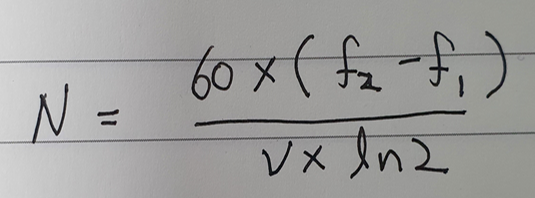 N = 60 × ( f₂ - f₁ ) / V × ln2